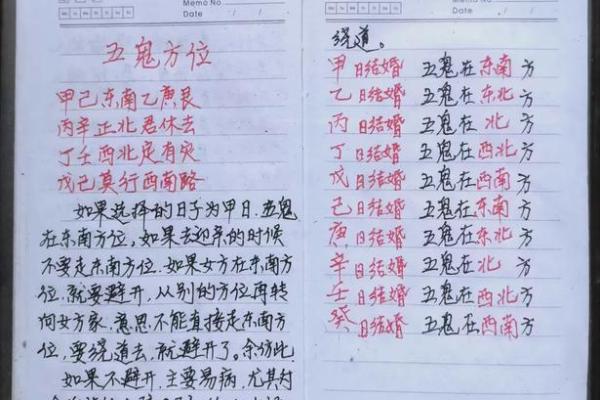 Memo No
Date / /
五鬼方位
甲己东南乙庚艮
丙辛正北君休去
丁壬西北定有灾
戊己莫行西南路
如果选择的日子为甲日.五鬼
在东南方位,如果去迎亲的时候
不要走东南方位.如果女方在东南方
位,就要避开,从别的方位再转
向女方家,意思不能直接走东南方
位,要绕道去,就避开了。余仿此
如果不避开,主要易病,尤其对
Memo No
Date / /
绕道。
甲日结婚 五鬼在东南方
乙日结婚 五鬼在东北方
丙日结婚 五鬼在北方
丁日结婚 五鬼在西北方
戊日结婚 五鬼在西南方
己日结婚 五鬼在东南方
庚日结婚 五鬼在东北方
辛日结婚 五鬼在北方
壬日结婚 五鬼在西北方
癸日结婚 五鬼在西南方